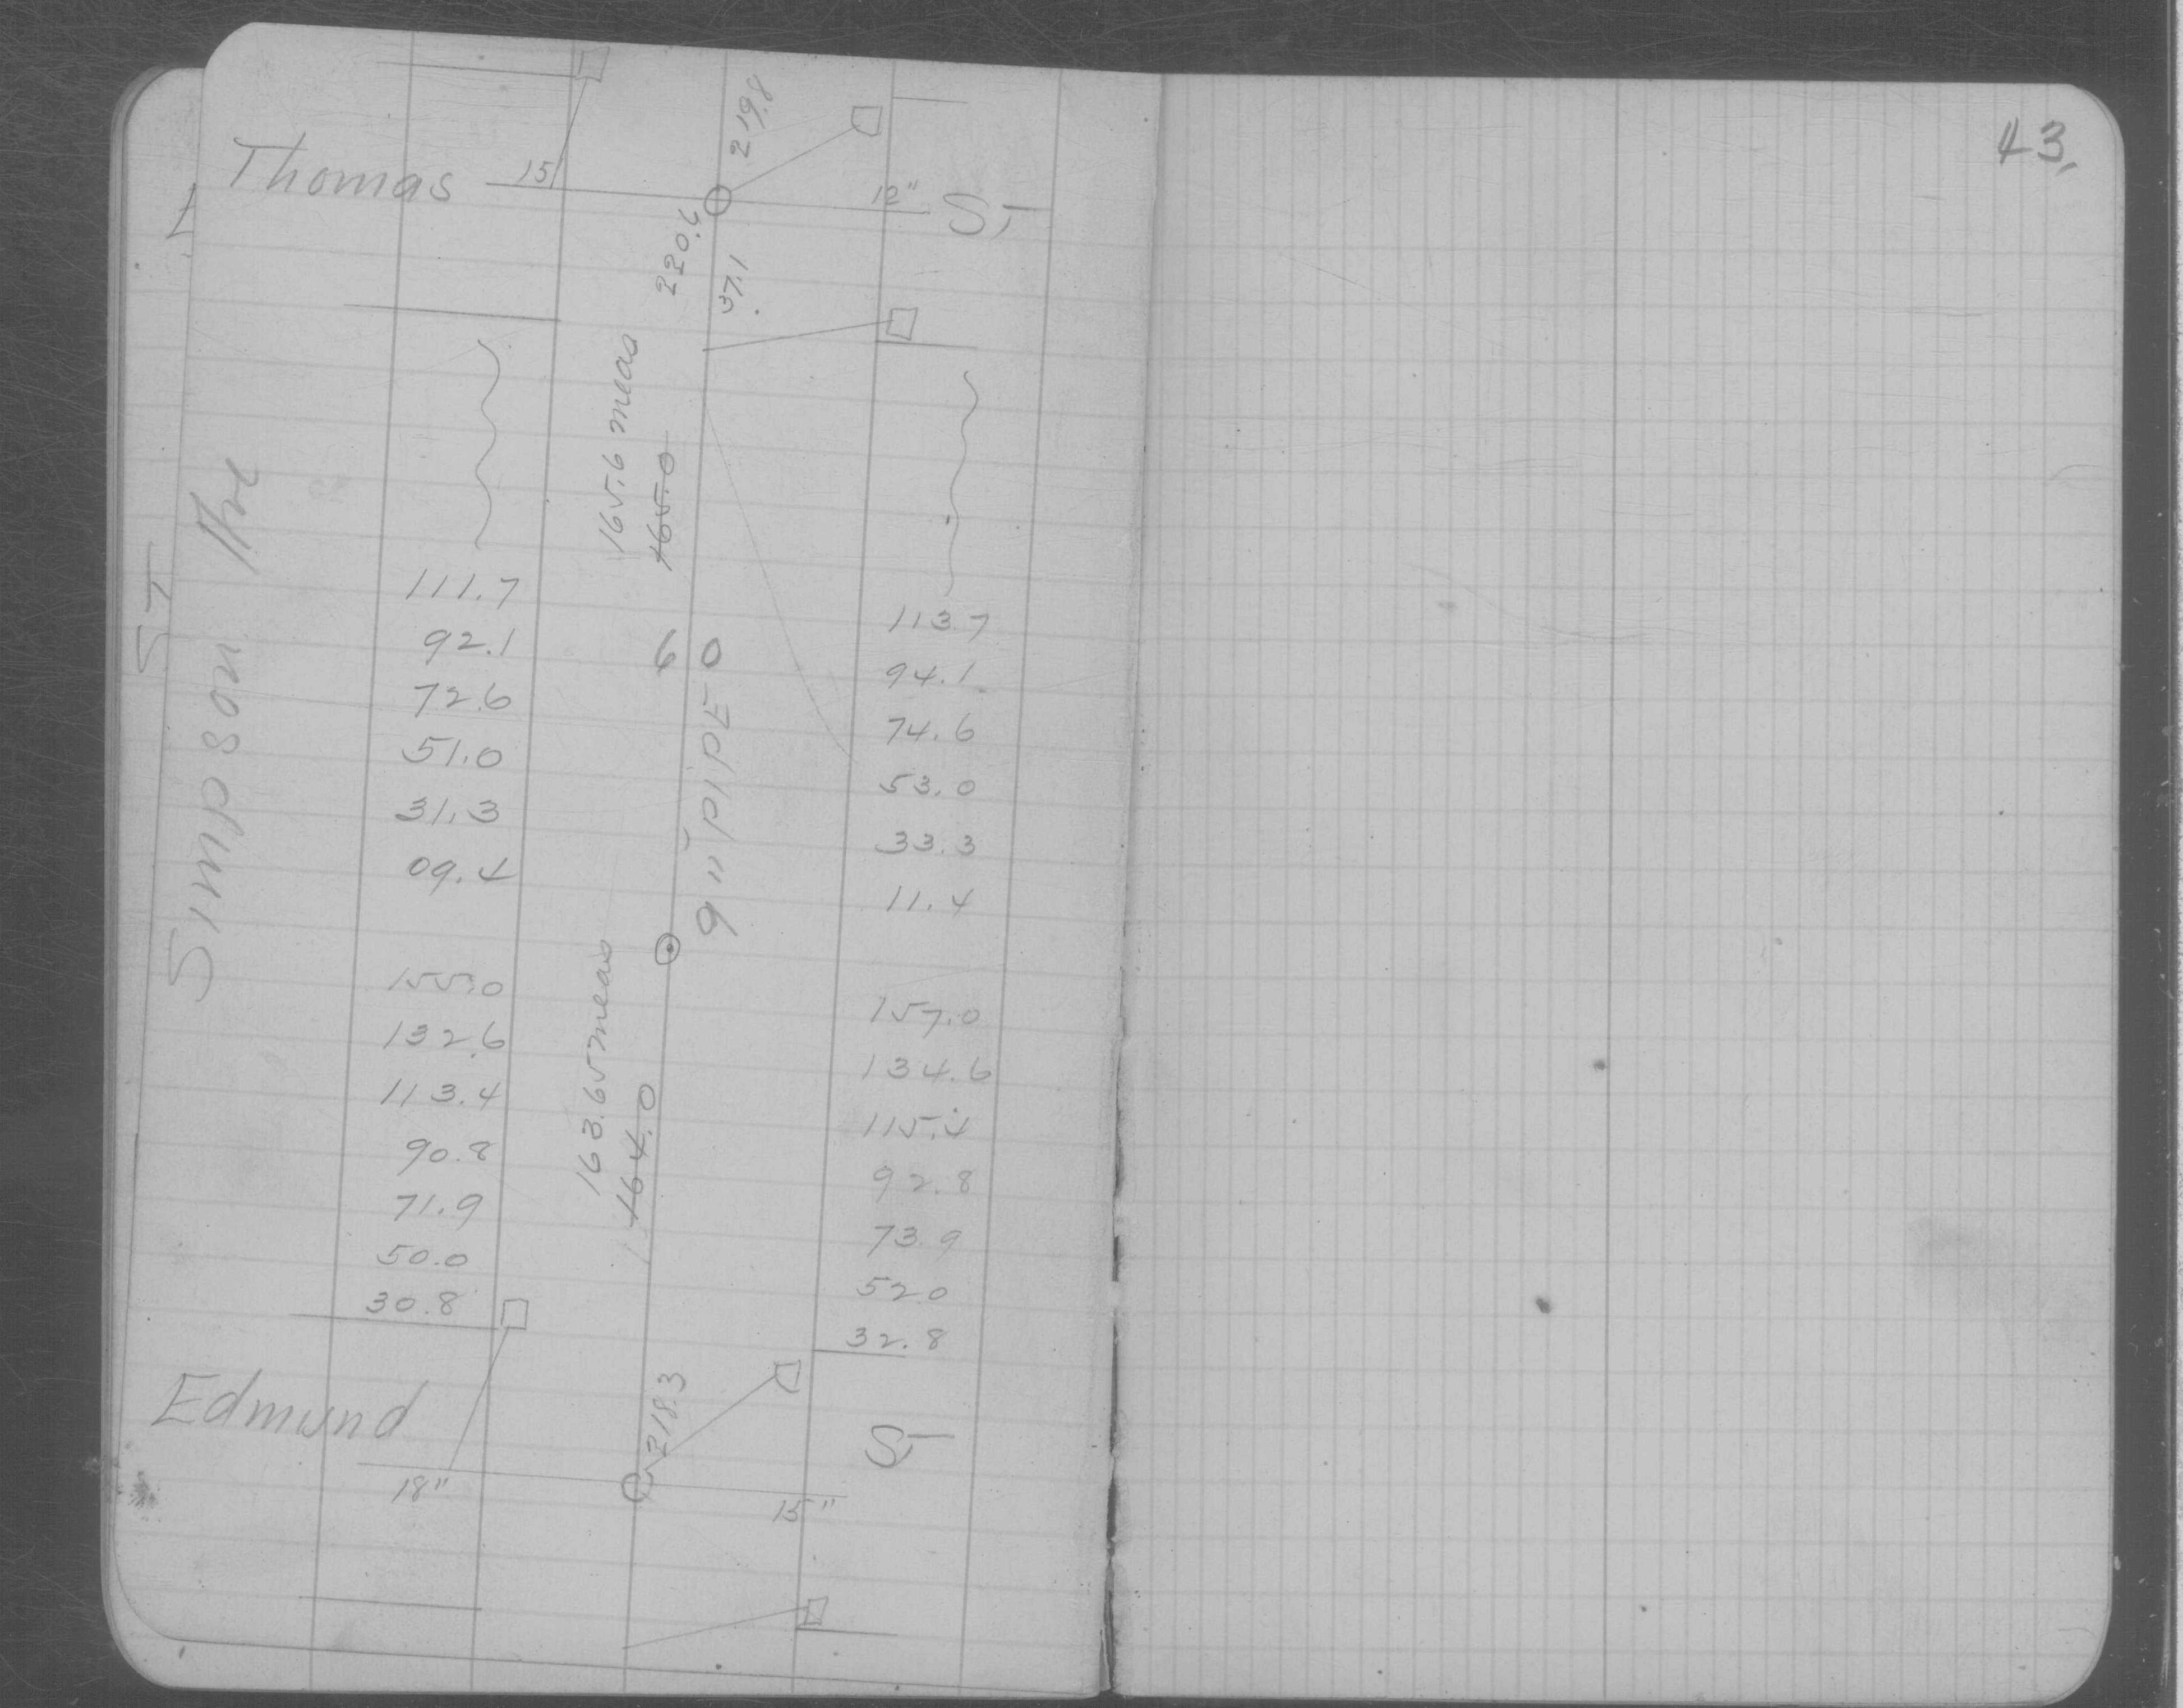 43.
219.8
Thomas 15 12" St
220.6
37.1
165.6 meas
165.0
Simpson Ave
ST
111.7 113.7
92.1 60 94.1
72.6 74.6
51.0 53.0
31.3 33.3
09.4 11.4
9" PIPE
155.0 157.0
132.6 134.6
113.4 115.4
90.8 92.8
71.9 73.9
50.0 52.0
30.8 32.8
163.65 meas
164.0
218.3
Edmund St
18" 15"